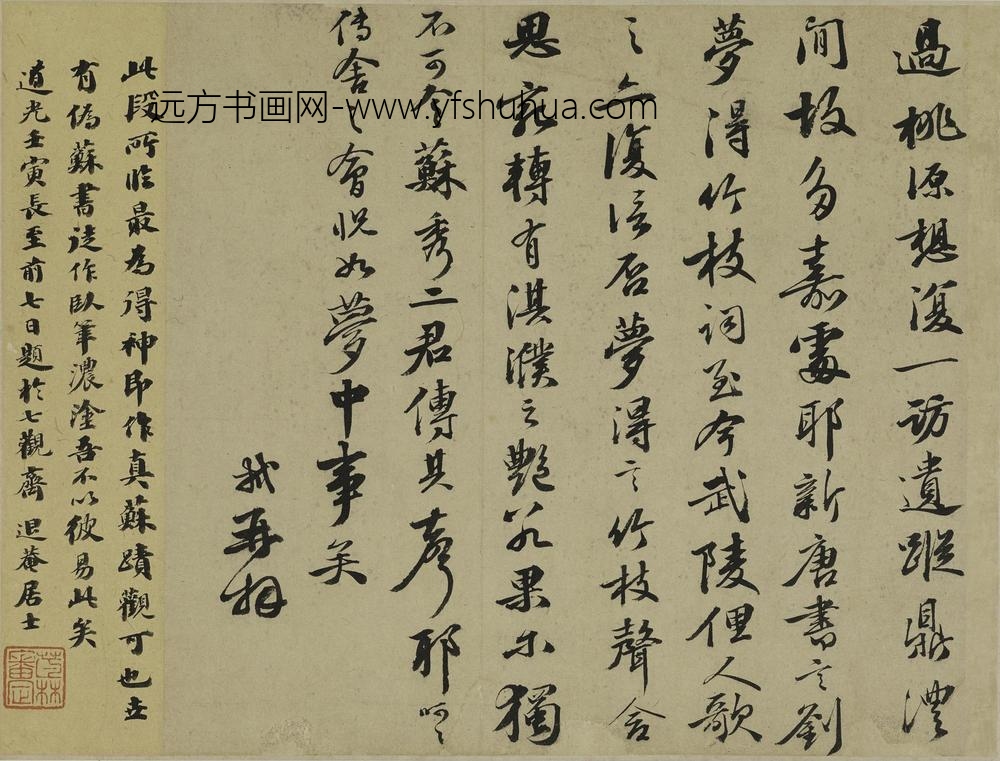 過桃源想復一訪遺蹤鼎澧
間故多嘉處耶新唐書言劉
夢得竹枝詞至今武陵俚人歌
之六復信否夢得之竹枝聲含
思宛轉有淇濮之艷若果爾獨
不可令蘇秀二君傳其聲耶呵呵
傳舍之會怳如夢中事矣
軾再拜
此段所臨最為得神即作真蘇蹟觀可也世
有偽蘇書徒作臥筆濃塗吾不以彼易此矣
道光壬寅長至前七日題於七觀齋 退菴居士
茝林審定
远方书画网-www.yfshuhua.com